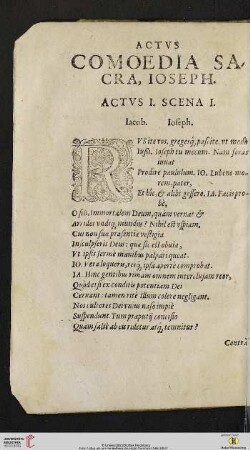 ACTVS
COMOEDIA SA-
CRA, IOSEPH.
ACTVS I. SCENA I.
Iacob. Ioseph.
RVS ite vos, gregesq́; pascite, vt modo
Iussi. Ioseph tu mecum. Nam foras
iuuat
Prodire paululum. IO. Lubens mo-
rem, pater,
Et hîc, & alibi gessero. IA. Facis pro-
bè.
O fili, immortalem Deum, quàm vernat &
Arridet vndiq; mundus? Nihil est vspiam,
Cui non suæ præsentiæ vestigia
Insculpserit Deus: quæ sic est obuia,
Vt ipsis fermè manibus palpari queat.
IO. Vera loqueris, reiq́; ipsa aperte comprobat.
IA. Hinc gentibus
Quòd etsi ex conditis potentiam Dei
Cernant: tamen ritè illum colere negligant.
Nos cultores Deorum naso impiè
Suspendunt. Tum præputij concisio
Quàm salsè ab eis ridetur atq́; temnitur?
Contrà